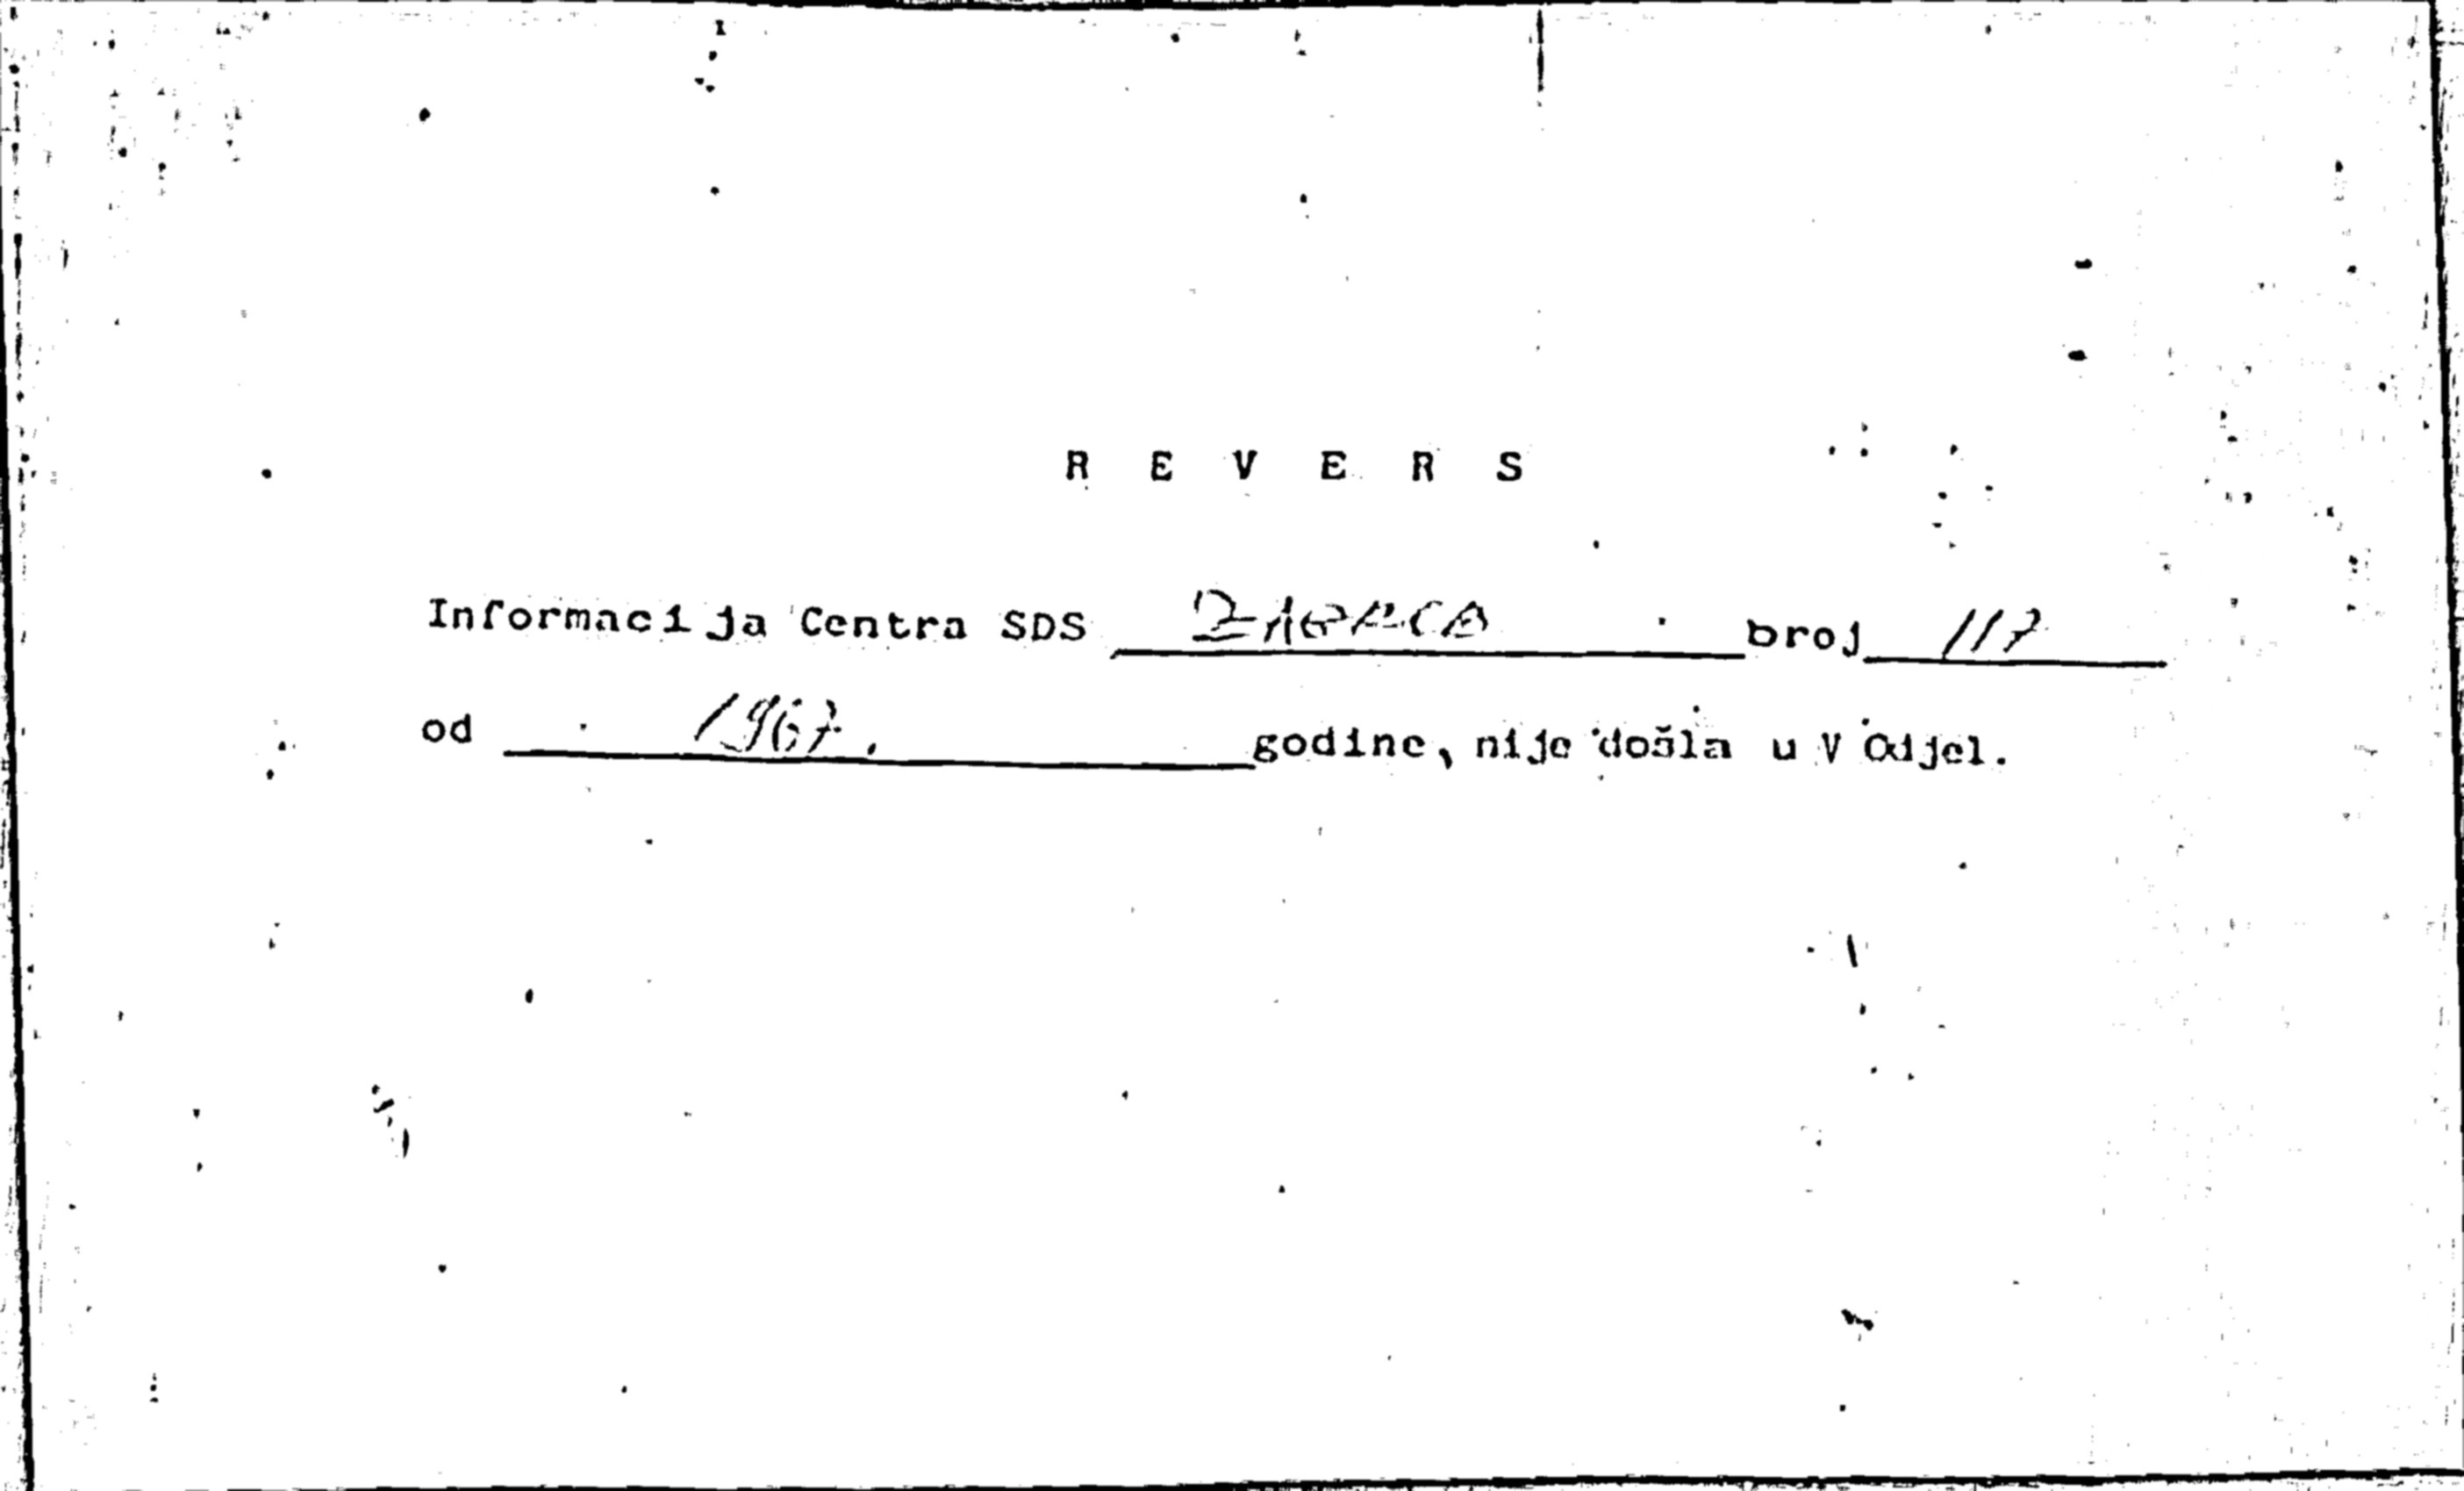 R E V E R S
Informacija Centra SDS ZAGREB broj 117
od 1967. godine, nije došla u V Odjel.